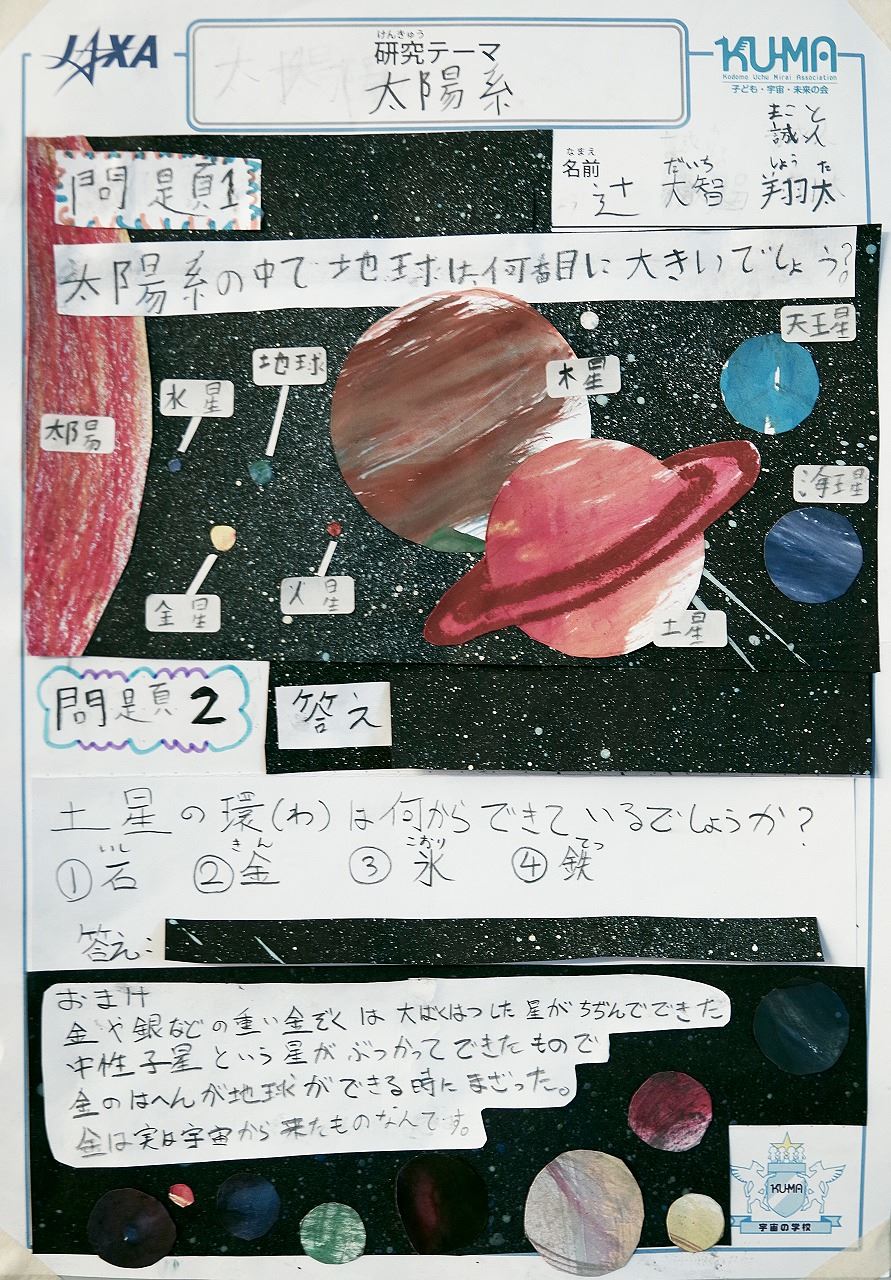 JAXA
けんきゅう
研究テーマ
太陽系
KU-MA
Kodomo Uchu Mirai Association
子ども・宇宙・未来の会
なまえ
名前
まこと
誠人
だいち しょうた
辻 大智 翔太
問題1
太陽系の中で地球は、何番目に大きいでしょう?
天王星
地球
木星
水星
太陽
海王星
金星
火星
土星
問題2
答え
土星の環(わ)は何からできているでしょうか?
いし きん こおり てつ
①石 ②金 ③氷 ④鉄
答え:
おまけ
金や銀などの重い金ぞくは大ばくはつした星がちぢんでできた
中性子星という星がぶつかってできたもので
金のはへんが地球ができる時にまざった。
金は実は宇宙から来たものなんです。
KU-MA
宇宙の学校